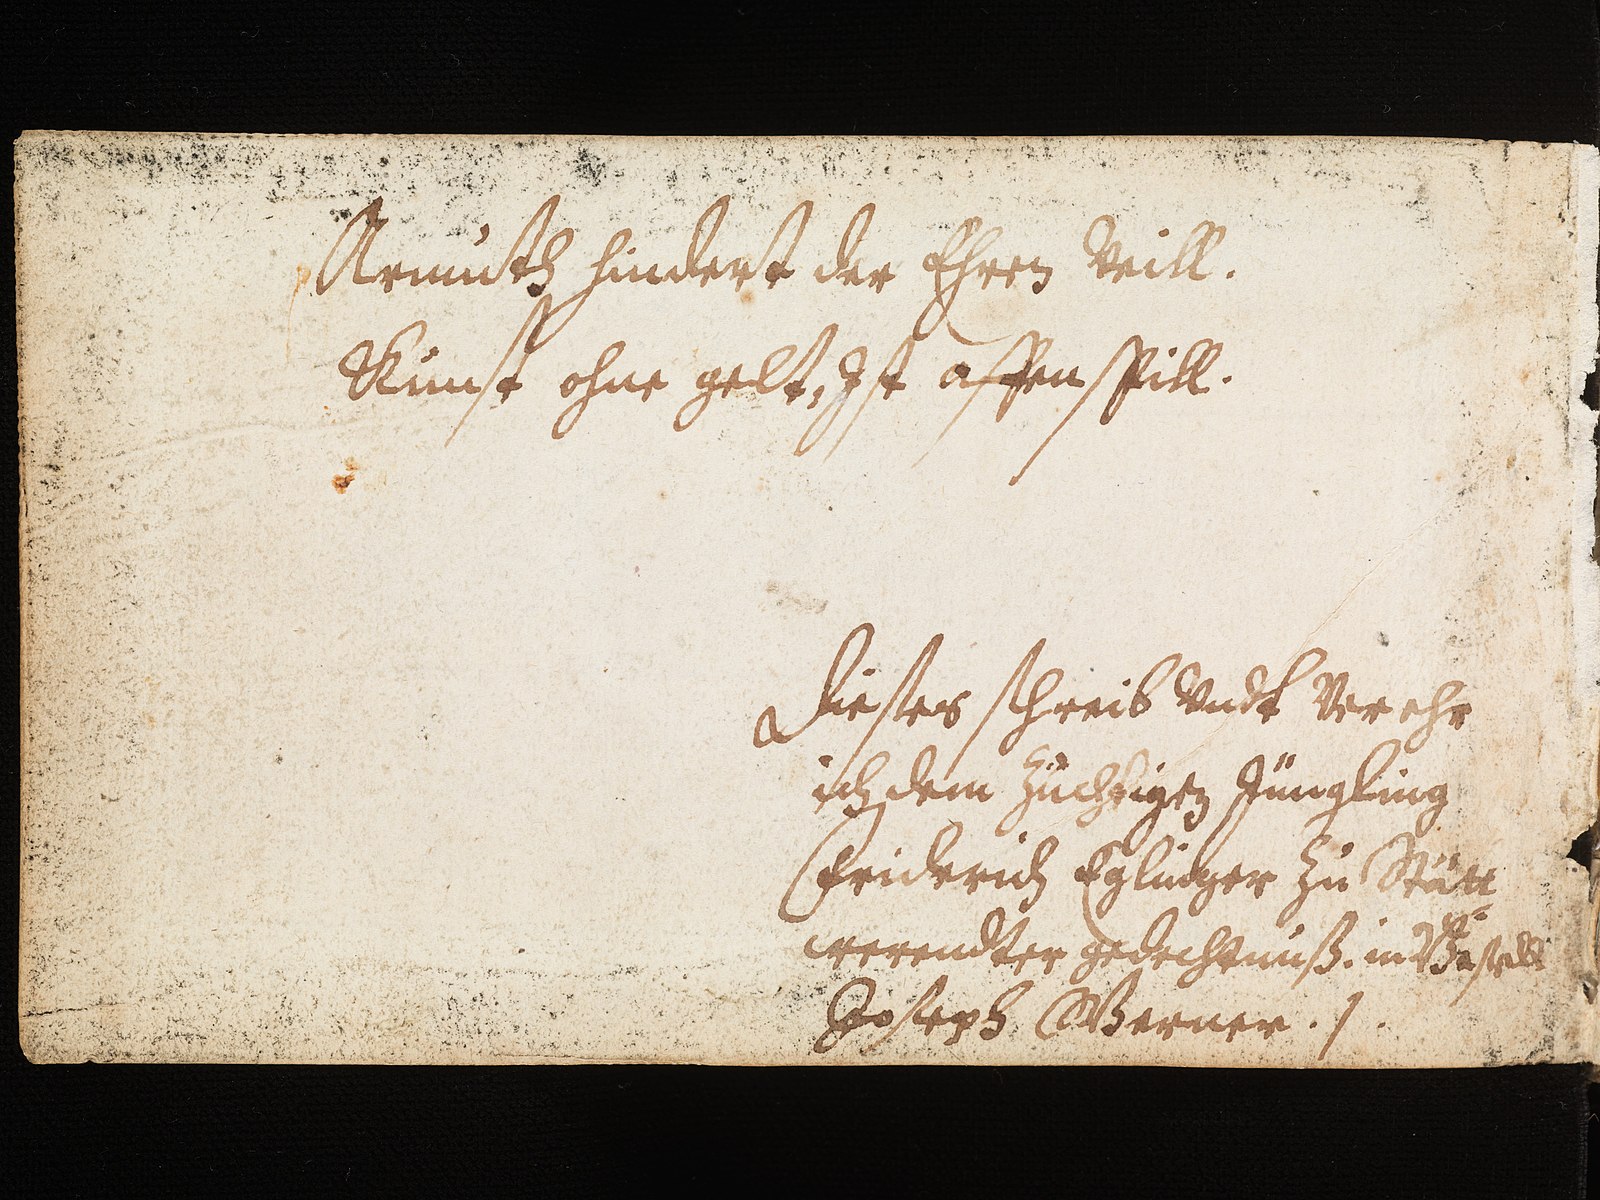 Armuth hindert der Ehren Veill.
Kunst ohne gelt, Ist affen spill.
Dieses schreib Vndt Ver ehr
ich dem Züchtigen Jüngling
Friderich Eglinger Zu Stätt
werendter gedechtnuß. in Basell
Joseph Werner.